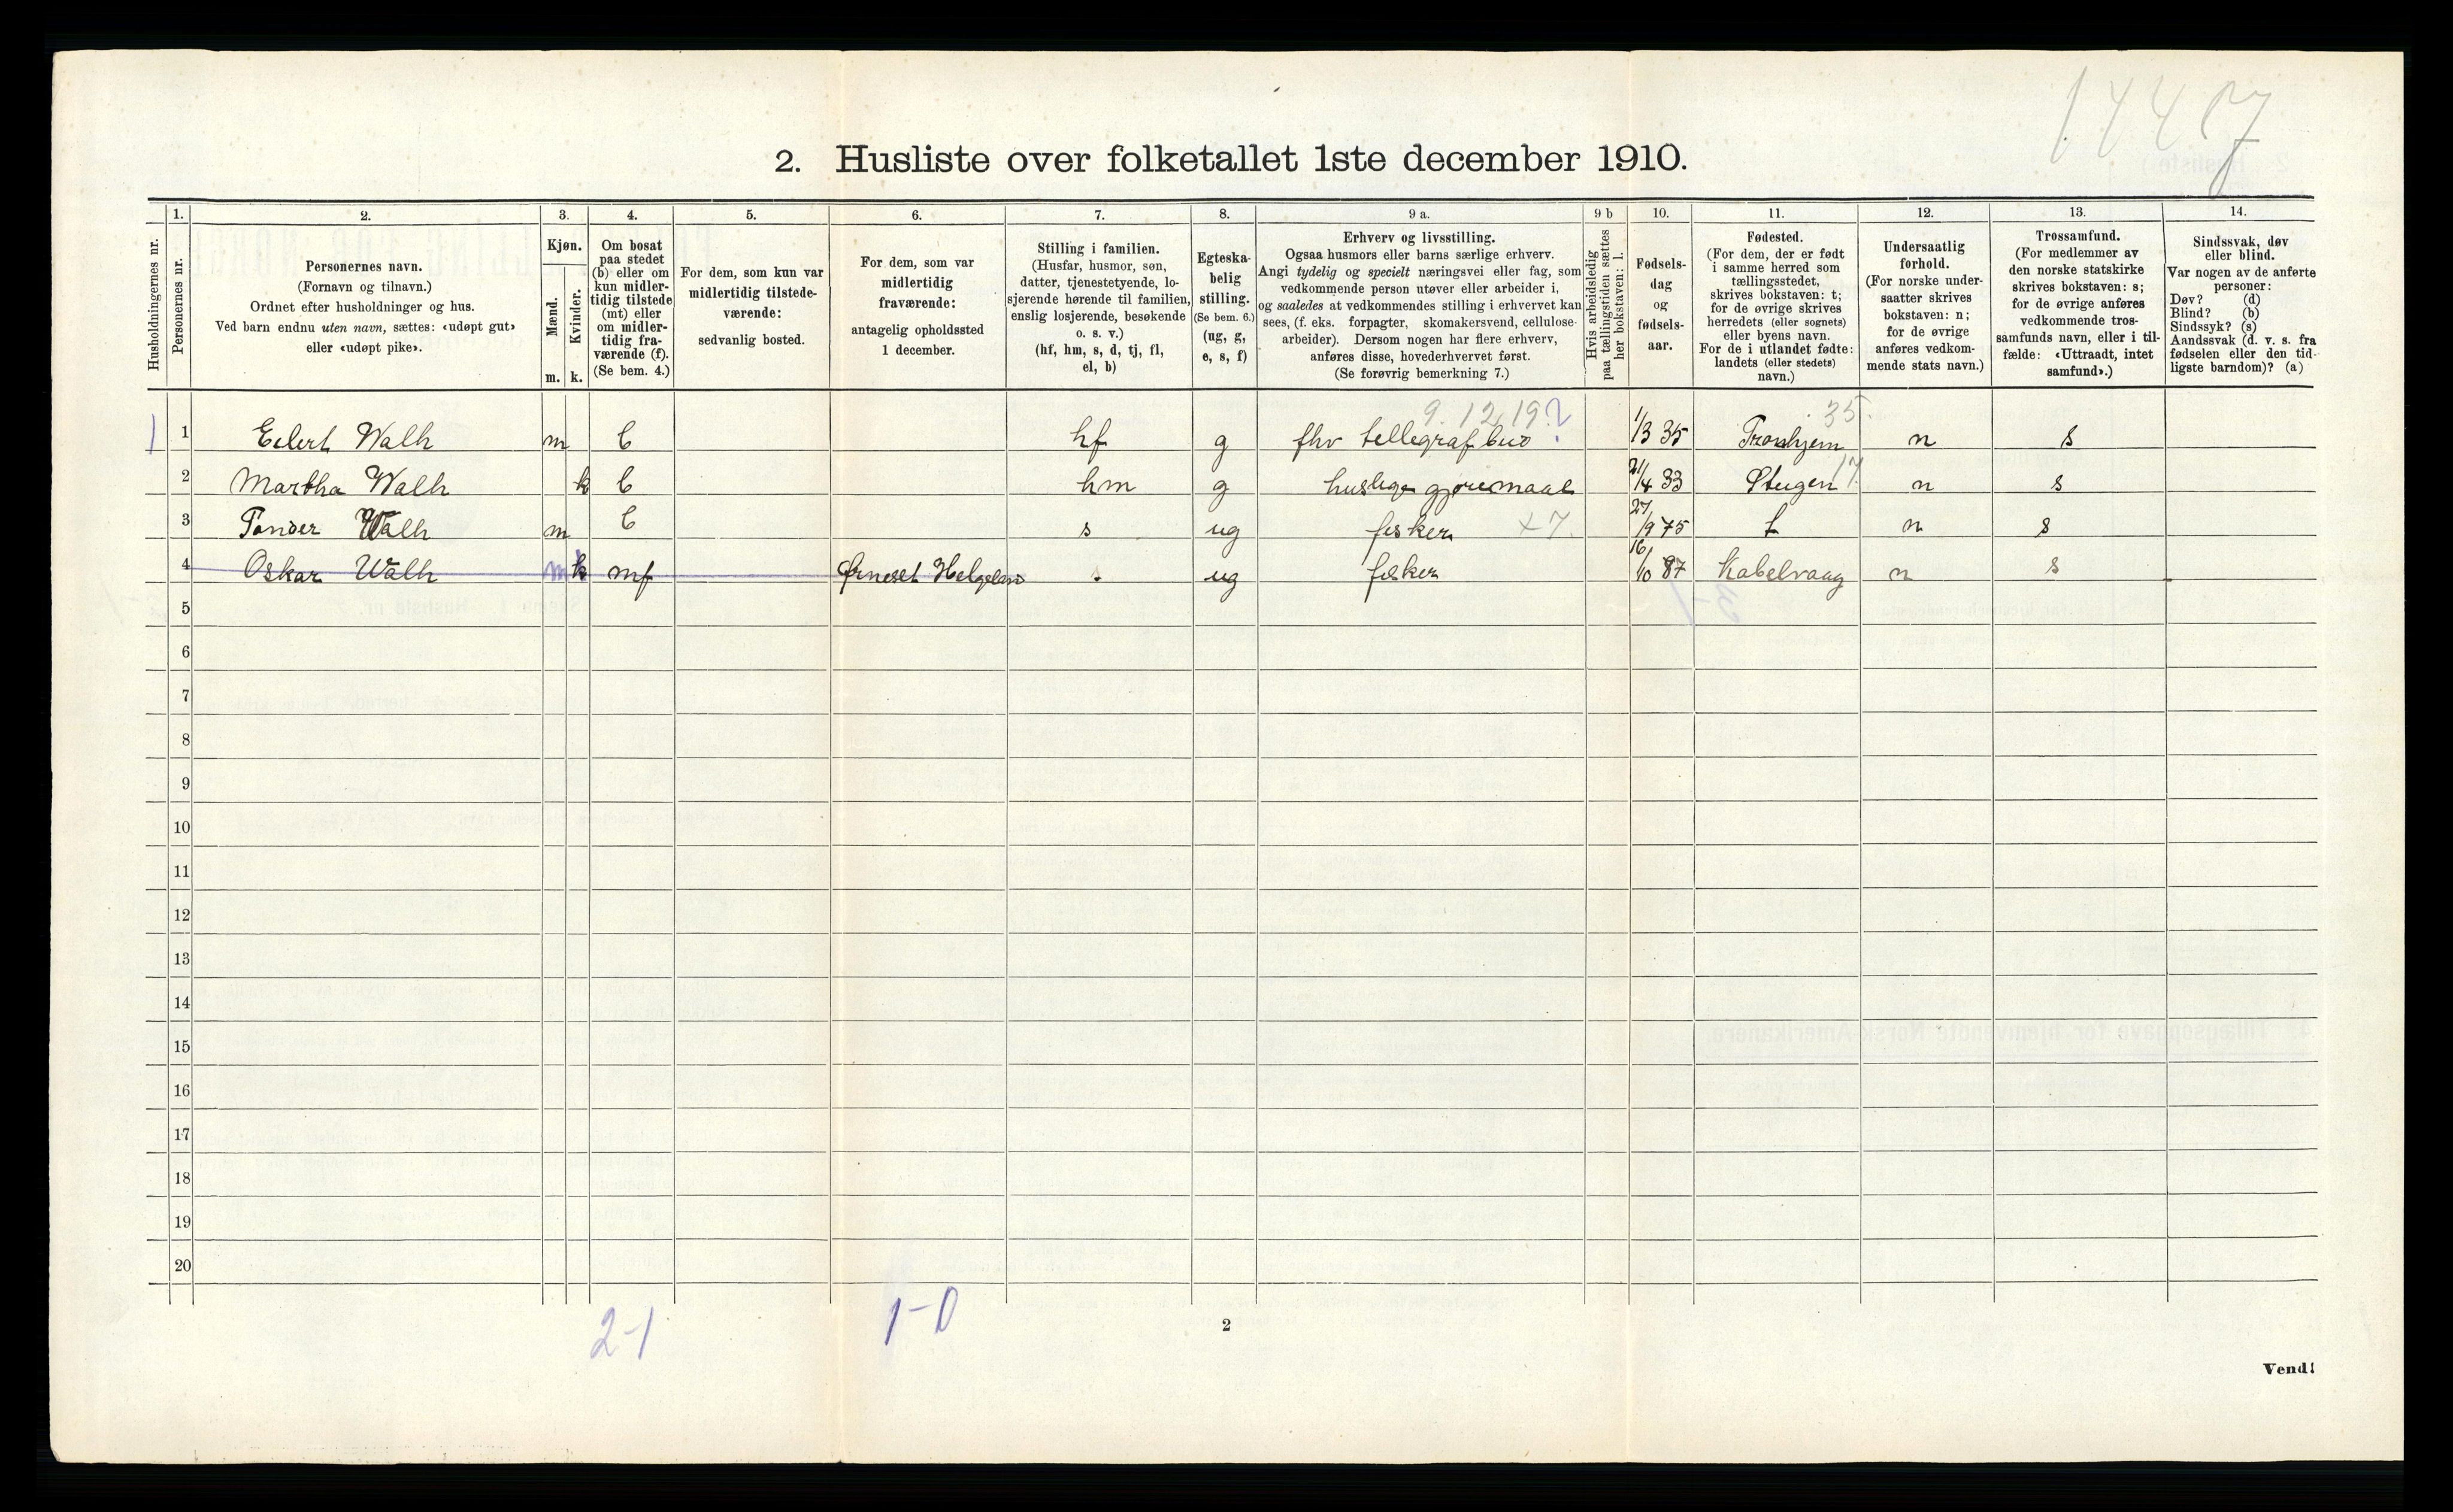 1447
2. Husliste over folketallet 1ste december 1910.
Husholdningernes nr.
1.
Personernes nr.
2.
Personernes navn.
(Fornavn og tilnavn.)
Ordnet efter husholdninger og hus.
Ved barn endnu uten navn, sættes: «udøpt gut»
eller «udøpt pike».
3.
Kjøn.
Mænd.
Kvinder.
m. k.
4.
Om bosat
paa stedet
(b) eller om
kun midler-
tidig tilstede
(mt) eller
om midler-
tidig fra-
værende (f).
(Se bem. 4.)
5.
For dem, som kun var
midlertidig tilstede-
værende:
sedvanlig bosted.
6.
For dem, som var
midlertidig
fraværende:
antagelig opholdssted
1 december.
7.
Stilling i familien.
(Husfar, husmor, søn,
datter, tjenestetyende, lo-
sjerende hørende til familien,
enslig losjerende, besøkende
o. s. v.)
(hf, hm, s, d, tj, fl,
el, b)
8.
Egteska-
belig
stilling.
(Se bem. 6.)
(ug, g,
e, s, f)
9 a.
Erhverv og livsstilling.
Ogsaa husmors eller barns særlige erhverv.
Angi tydelig og specielt næringsvei eller fag, som
vedkommende person utøver eller arbeider i,
og saaledes at vedkommendes stilling i erhvervet kan
sees, (f. eks. forpagter, skomakersvend, cellulose-
arbeider). Dersom nogen har flere erhverv,
anføres disse, hovederhvervet først.
(Se forøvrig bemerkning 7.)
9 b
Hvis arbeidsledig
paa tællingstiden sættes
her bokstaven: l.
10.
Fødsels-
dag
og
fødsels-
aar.
11.
Fødested.
(For dem, der er født
i samme herred som
tællingsstedet,
skrives bokstaven: t;
for de øvrige skrives
herredets (eller sognets)
eller byens navn.
For de i utlandet fødte:
landets (eller stedets)
navn.)
12.
Undersaatlig
forhold.
(For norske under-
saatter skrives
bokstaven: n;
for de øvrige
anføres vedkom-
mende stats navn.)
13.
Trossamfund.
(For medlemmer av
den norske statskirke
skrives bokstaven: s;
for de øvrige anføres
vedkommende tros-
samfunds navn, eller i til-
fælde: «Uttraadt, intet
samfund».)
14.
Sindssvak, døv
eller blind.
Var nogen av de anførte
personer:
Døv? (d)
Blind? (b)
Sindssyk? (s)
Aandssvak (d. v. s. fra
fødselen eller den tid-
ligste barndom)? (a)
9.12.19? 35.
1 1 Eilert Walh m b hf g fhv tellegraf bud 1/3 35 Tronhjem n s
2 Martha Walh k b hm g huslige gjøremaal 21/4 33 Steigen 17. n s
3 Tander Walh m b s ug fisker x7. 27/9 75 t n s
4 Oskar Walh m k mf Ørneset Helgeland s ug fisker 16/10 87 Kabelvaag n s
5
6
7
8
9
10
11
12
13
14
15
16
17
18
19
20
2-1
1-0
2
Vend!